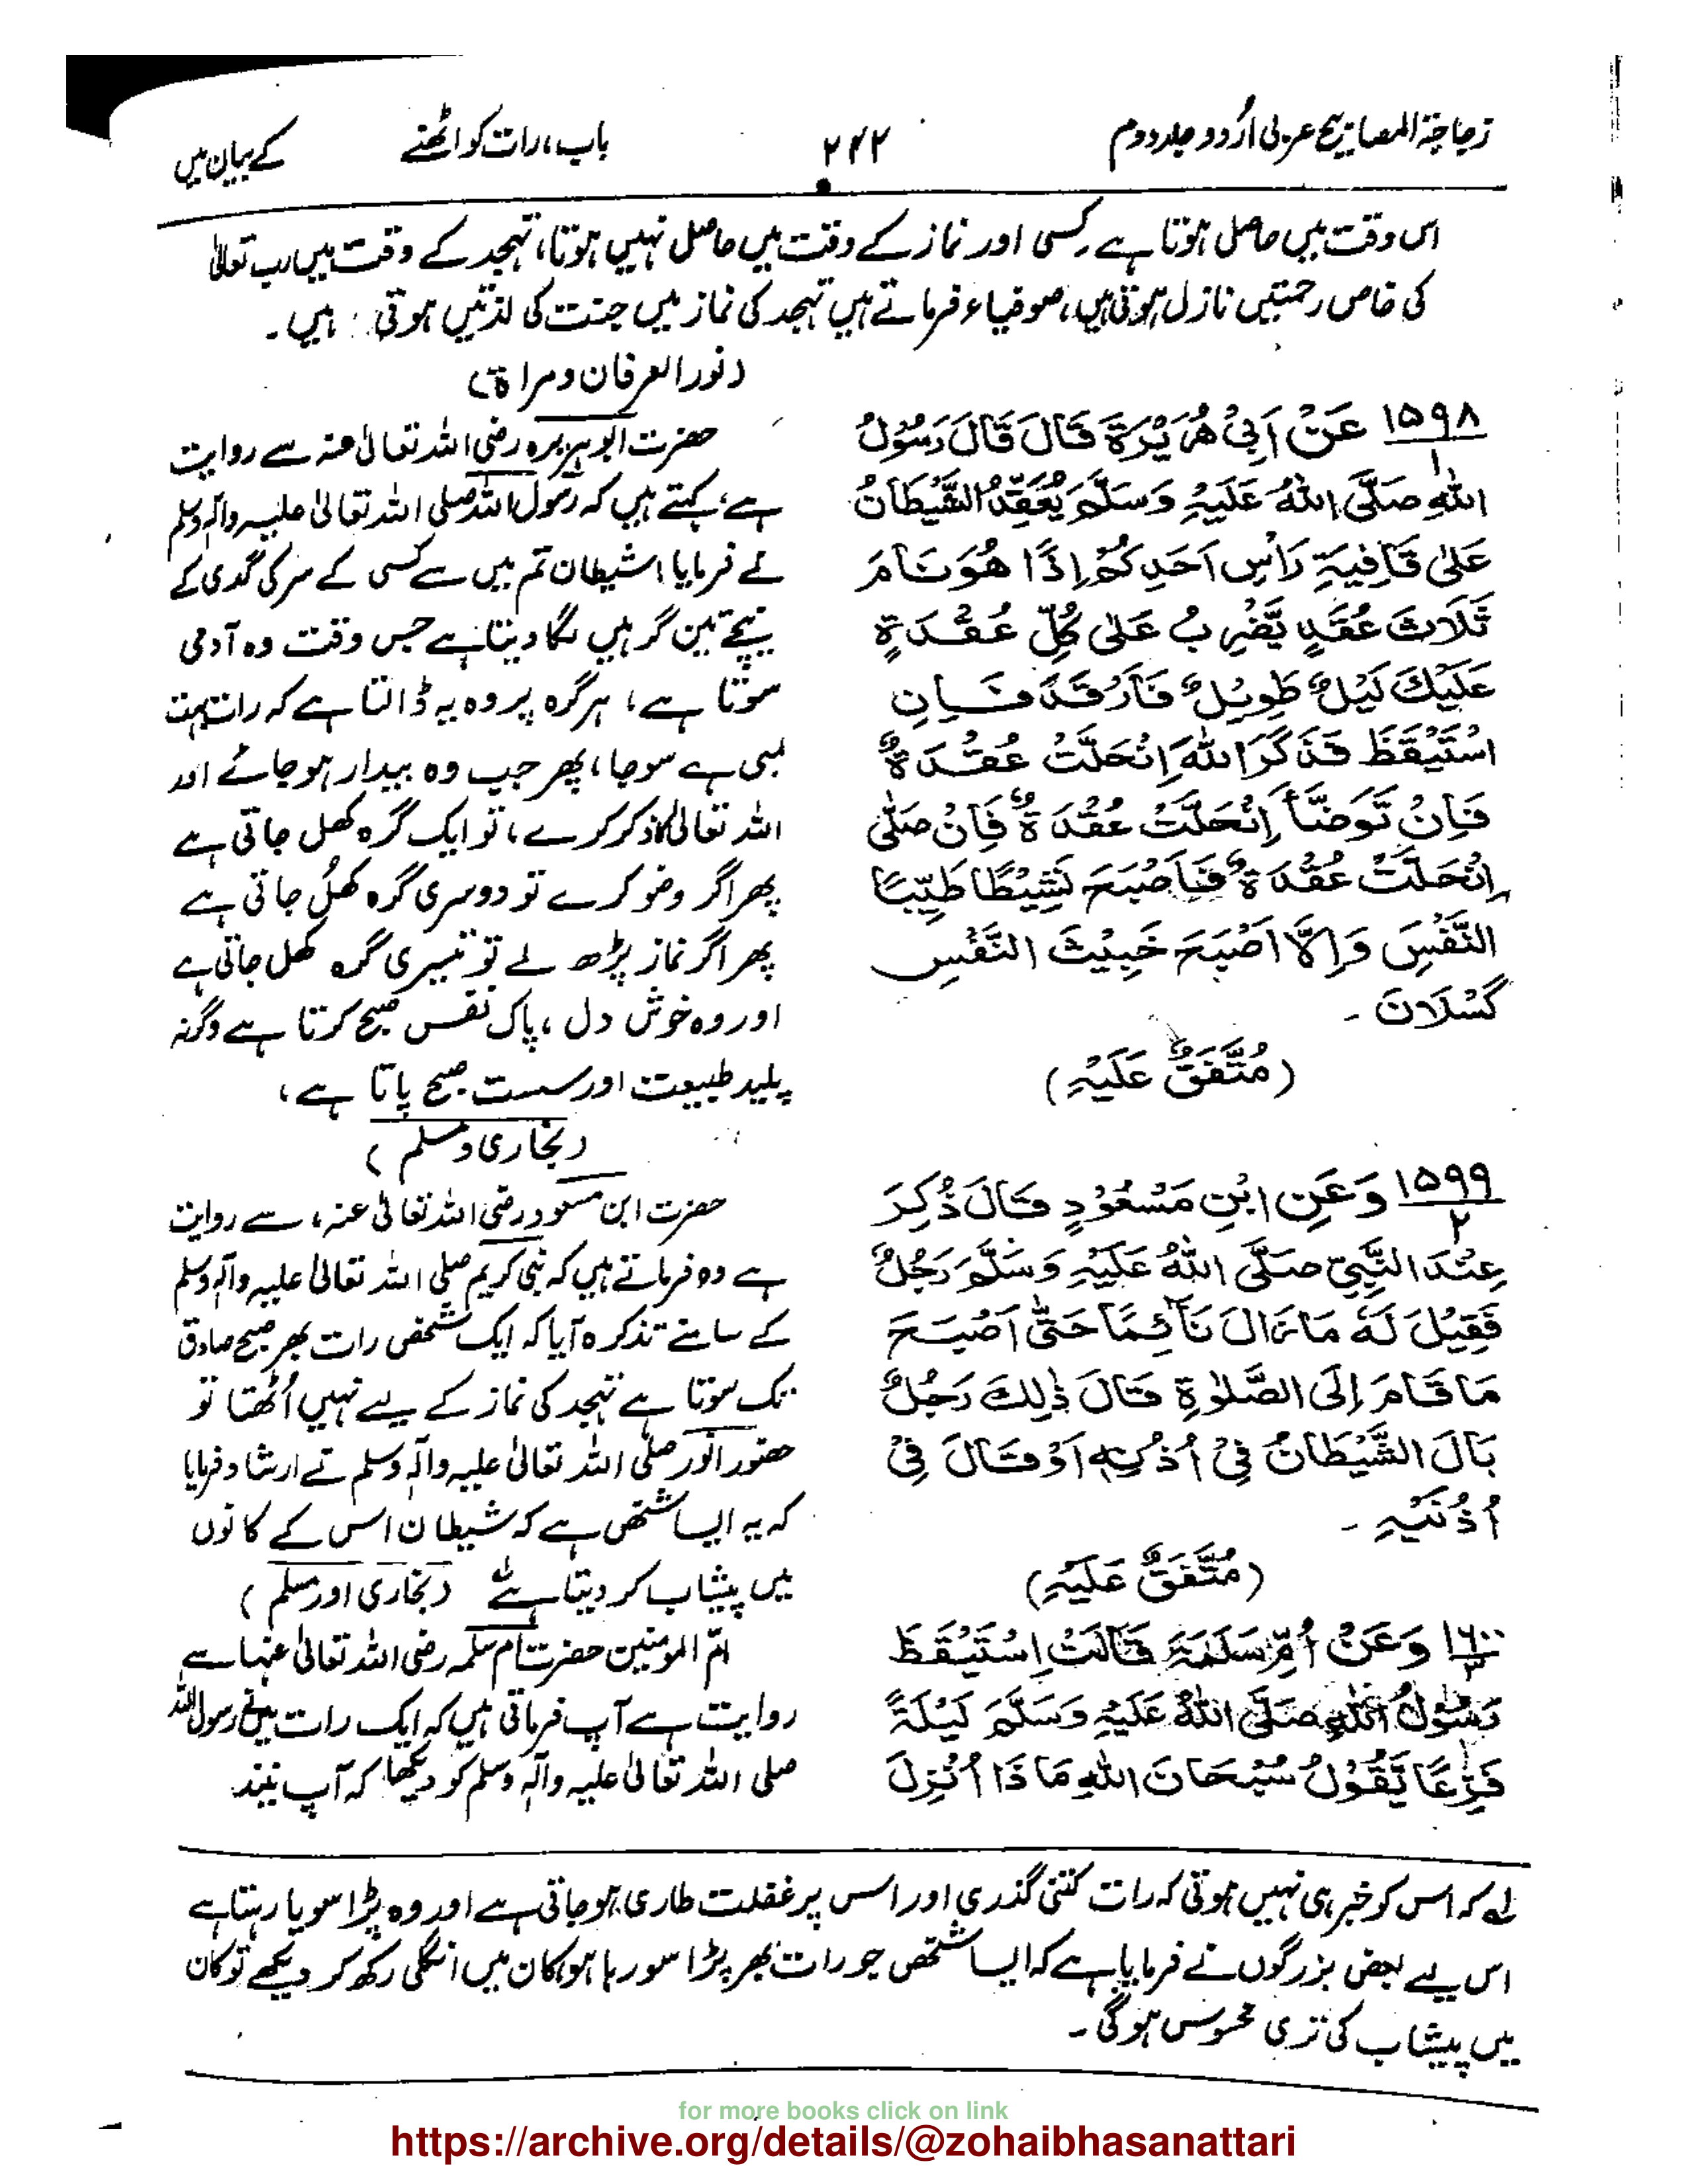 زجاجۃ المصابیح عربی اُردو جلد دوم
۲۴۲
باب، رات کو اٹھنے
کے بیان میں
اس وقت میں حاصل ہوتا ہے کسی اور نماز کے وقت میں حاصل نہیں ہوتا، تہجد کے وقت میں رب تعالیٰ
کی خاص رحمتیں نازل ہوتی ہیں، صوفیاء فرماتے ہیں تہجد کی نماز میں جنت کی لذتیں ہوتی ہیں۔
(نور العرفان و مراۃ)
۱۵۹۸ عَنْ اَبِیْ هُرَیْرَةَ قَالَ قَالَ رَسُوْلُ
۱
اللّٰهِ صَلَّی اللّٰهُ عَلَیْهِ وَسَلَّمَ یُعَقِّدُ الشَّیْطَانُ
عَلٰی قَافِیَةِ رَأْسِ اَحَدِكُمْ اِذَا هُوَ نَامَ
ثَلَاثَ عُقَدٍ یَّضْرِبُ عَلٰی كُلِّ عُقْدَةٍ
عَلَیْكَ لَیْلٌ طَوِیْلٌ فَارْقُدْ فَاِنِ
اسْتَیْقَظَ فَذَكَرَ اللّٰهَ اِنْحَلَّتْ عُقْدَةٌ
فَاِنْ تَوَضَّأَ اِنْحَلَّتْ عُقْدَةٌ فَاِنْ صَلّٰی
اِنْحَلَّتْ عُقْدَةٌ فَاَصْبَحَ نَشِیْطًا طَیِّبَ
النَّفْسِ وَاِلَّا اَصْبَحَ خَبِیْثَ النَّفْسِ
كَسْلَانَ ۔
(مُتَّفَقٌ عَلَیْهِ)
حضرت ابوہریرہ رضی اللہ تعالیٰ عنہ سے روایت
ہے، کہتے ہیں کہ رسول اللہ صلی اللہ تعالیٰ علیہ وآلہ وسلم
نے فرمایا، شیطان تم میں سے کسی کے سر کی گدی کے
نیچے تین گرہیں لگا دیتا ہے جس وقت وہ آدمی
سوتا ہے، ہر گرہ پر وہ یہ ڈالتا ہے کہ رات بہت
لمبی ہے سو جا، پھر جب وہ بیدار ہو جائے اور
اللہ تعالیٰ کا ذکر کرے، تو ایک گرہ کھل جاتی ہے
پھر اگر وضو کرے تو دوسری گرہ کھل جاتی ہے
پھر اگر نماز پڑھ لے تو تیسری گرہ کھل جاتی ہے
اور وہ خوش دل، پاک نفس صبح کرتا ہے وگرنہ
پلید طبیعت اور سست صبح پاتا ہے،
(بخاری و مسلم)
۱۵۹۹ وَعَنِ ابْنِ مَسْعُوْدٍ قَالَ ذُكِرَ
۲
عِنْدَ النَّبِیِّ صَلَّی اللّٰهُ عَلَیْهِ وَسَلَّمَ رَجُلٌ
فَقِیْلَ لَهٗ مَا زَالَ نَائِمًا حَتّٰی اَصْبَحَ
مَا قَامَ اِلَی الصَّلٰوةِ قَالَ ذٰلِكَ رَجُلٌ
بَالَ الشَّیْطَانُ فِیْ اُذُنِهٖ اَوْ قَالَ فِیْ
اُذُنَیْهِ ۔
(مُتَّفَقٌ عَلَیْهِ)
حضرت ابن مسعود رضی اللہ تعالیٰ عنہ، سے روایت
ہے وہ فرماتے ہیں کہ نبی کریم صلی اللہ تعالیٰ علیہ وآلہ وسلم
کے سامنے تذکرہ آیا کہ ایک شخص رات بھر صبح صادق
تک سوتا ہے تہجد کی نماز کے لیے نہیں اُٹھتا تو
حضور انور صلی اللہ تعالیٰ علیہ وآلہ وسلم نے ارشاد فرمایا
کہ یہ ایسا شخص ہے کہ شیطان اس کے کانوں
میں پیشاب کر دیتا ہے (بخاری اور مسلم)
۱۶۰۰ وَعَنْ اُمِّ سَلَمَةَ قَالَتْ اِسْتَیْقَظَ
۳
رَسُوْلُ اللّٰهِ صَلَّی اللّٰهُ عَلَیْهِ وَسَلَّمَ لَیْلَةً
فَزِعًا یَّقُوْلُ سُبْحَانَ اللّٰهِ مَاذَا اُنْزِلَ
امّ المومنین حضرت اُم سلمہ رضی اللہ تعالیٰ عنہا سے
روایت ہے آپ فرماتی ہیں کہ ایک رات میں نے رسول اللہ
صلی اللہ تعالیٰ علیہ وآلہ وسلم کو دیکھا کہ آپ نیند
لے کہ اس کو خبر ہی نہیں ہوتی کہ رات کتنی گذری اور اس پر غفلت طاری ہو جاتی ہے اور وہ پڑا سویا رہتا ہے
اس لیے بعض بزرگوں نے فرمایا ہے کہ ایسا شخص جو رات بھر پڑا سو رہا ہو کان میں انگلی رکھ کر دیکھے تو کان
میں پیشاب کی تری محسوس ہوگی۔
for more books click on link
https://archive.org/details/@zohaibhasanattari